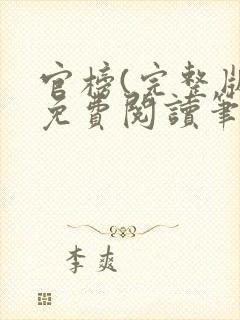 官榜(完整版
免費閱讀筆
李爽